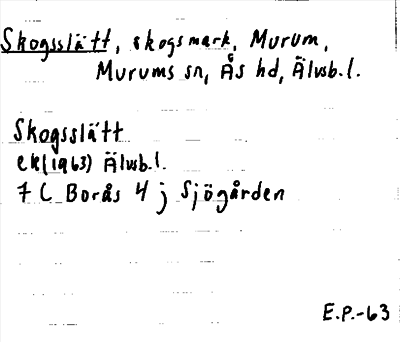 Skogsslätt, skogsmark, Murum,
Murums sn, Ås hd, Älvsb.l.
Skogsslätt
ek(1963) Älvsb.l.
7 C Borås 4 j Sjögården
E.P.-63